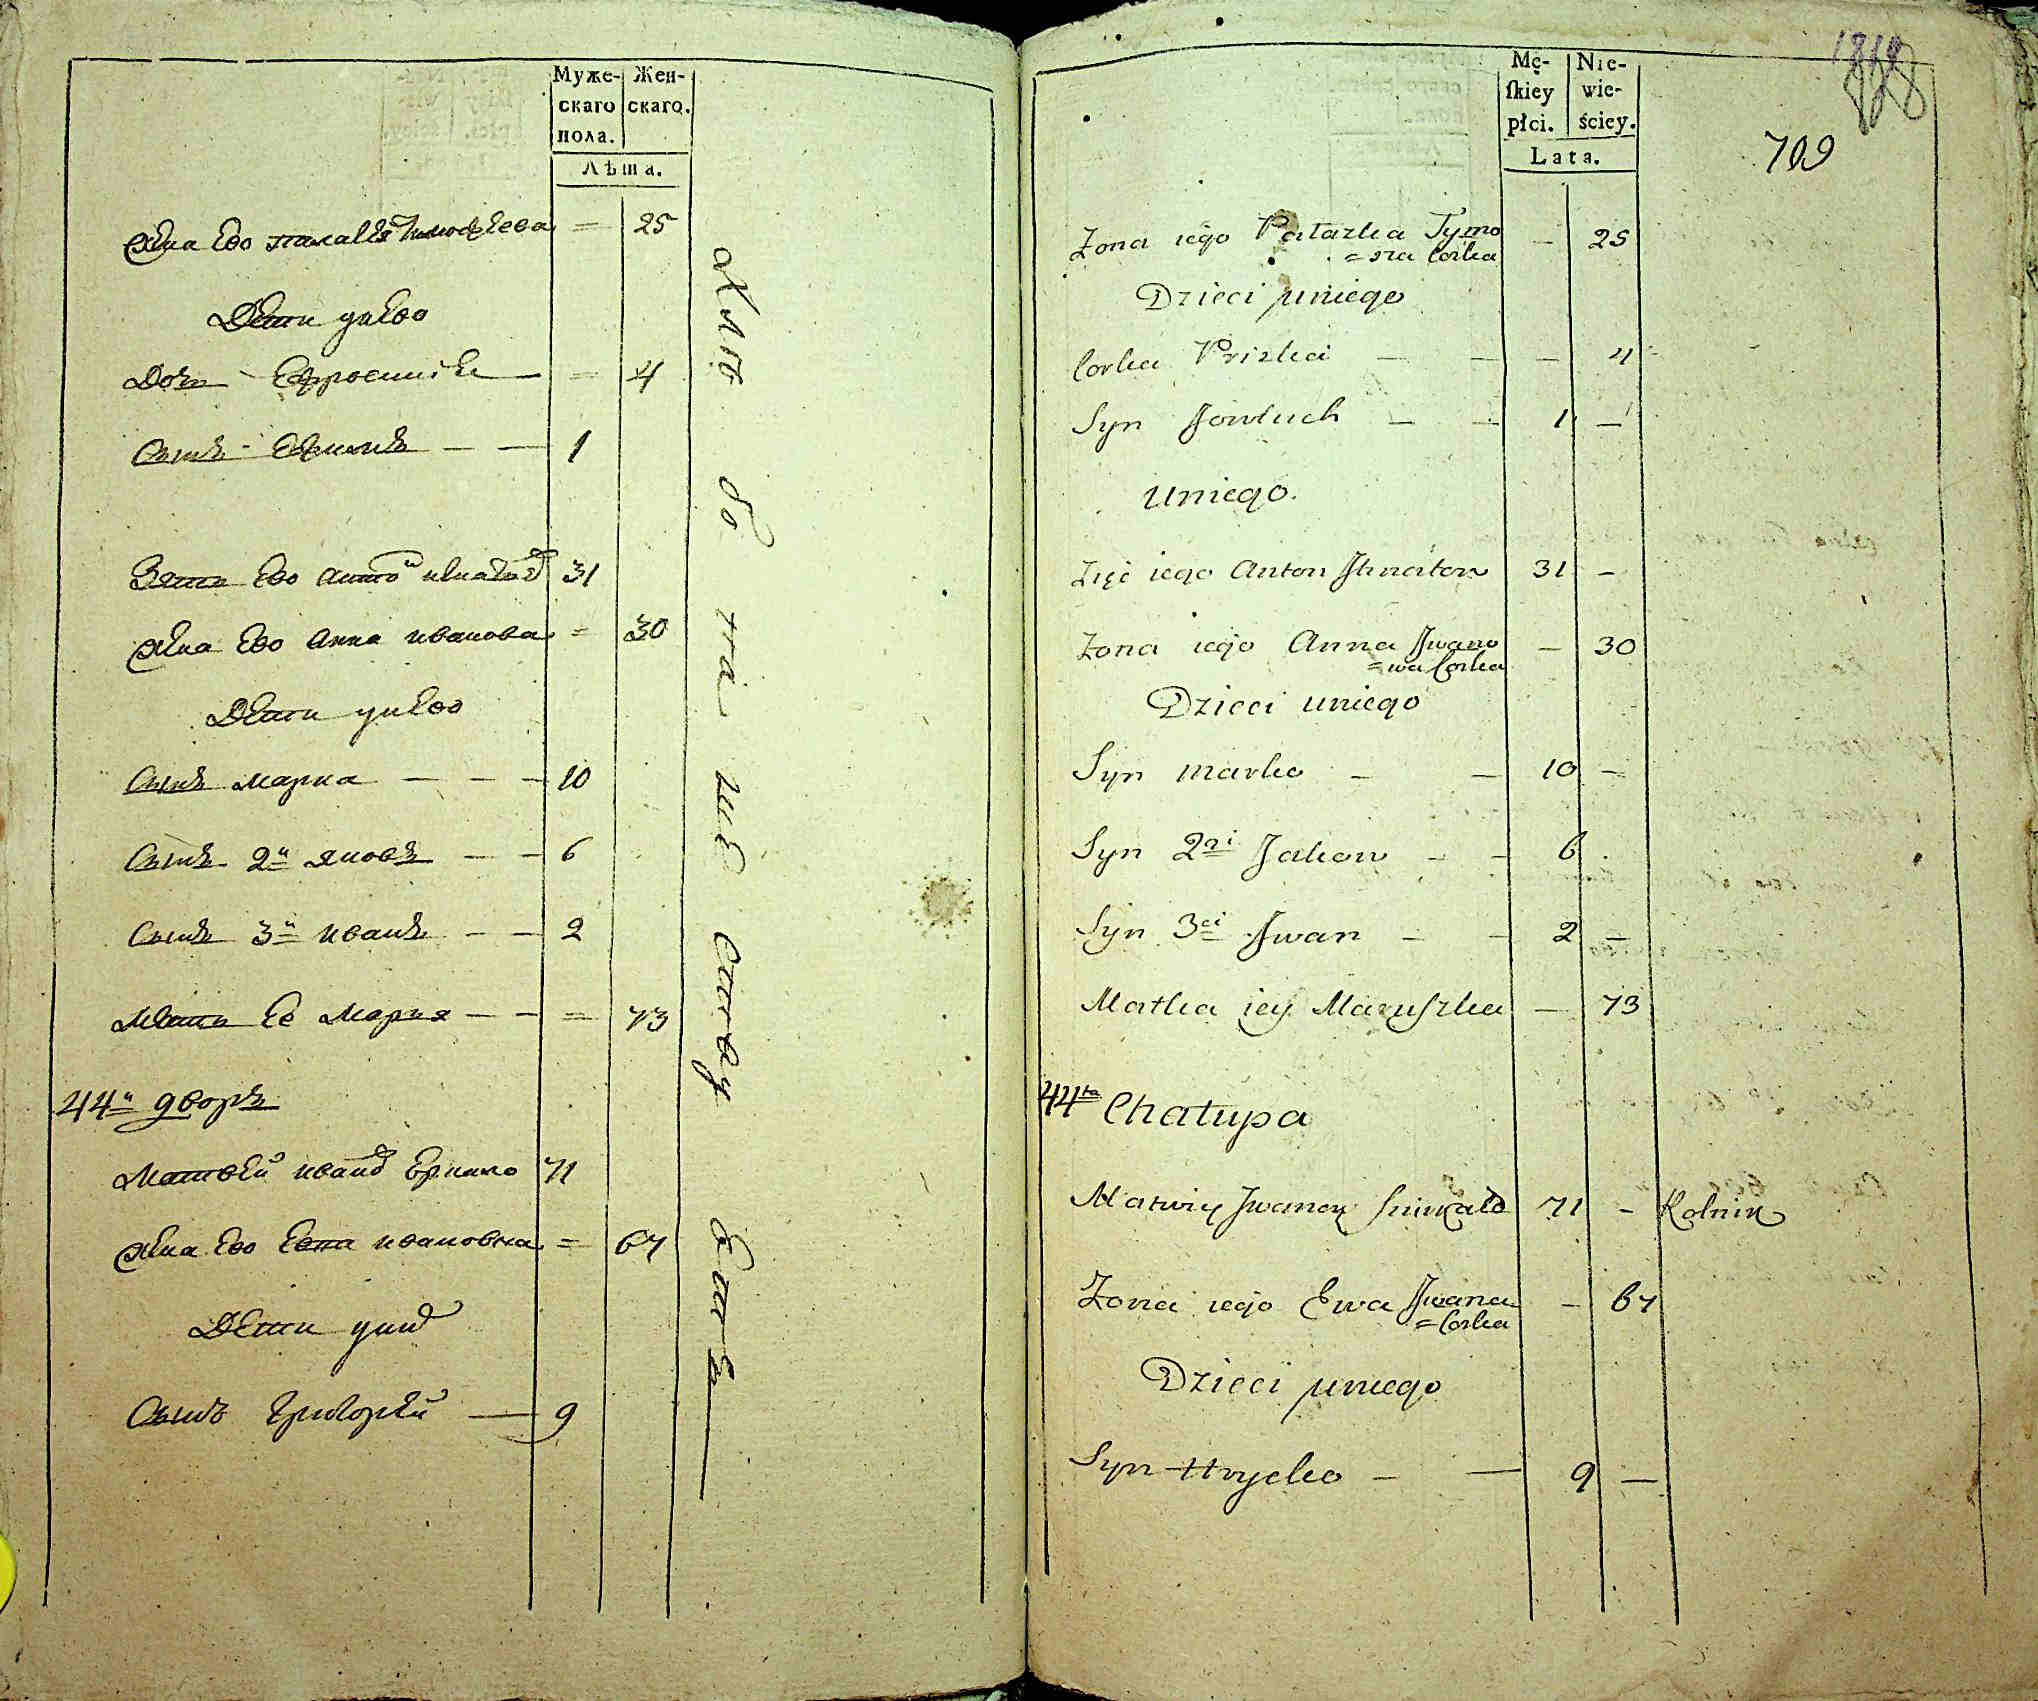 Муже-
скаго
пола.
Жен-
скаго.
Лѣта.
Жена Ево палагея Тимофеева = 25
Дети унево
Дочь - Ефросинiя — = 4
Сынъ - Ефимъ — — 1
Зять Ево антонъ игнатовъ 31
Жена Ево Анна иванова = 30
Дети унево
Сынъ марка — — — 10
Сынъ 2й яковъ — — 6
Сынъ 3й иванъ — — 2
Мать Ее Мария — — = 73
44й дворъ
Матвей ивановъ 71
Жена Ево Евва ивановна = 67
Дети унихъ
Сынъ Григорей — 9
Mę-
ſkiey
płci.
Nie-
wie-
ściey.
Lata.
709
Zona iego Pałazka Tymo — 25
= sza Corka
Dzieci uniego
Corka Priska — — — 4
Syn Jowtuch — — 1 —
uniego.
Zięć iego Anton Jhnatow 31 —
Zona iego Anna Jwano — 30
= wa Corka
Dzieci uniego
Syn Marko — — 10 —
Syn 2gi Jakow — — 6
Syn 3ci Jwan — — 2 —
Matka iey Maruszka — 73
44ta Chałupa
Matwiy Jwanow 71 — Rolnik
Zona iego Ewa Jwana — 67
= Corka
Dzieci uniego
Syn Hrycko — — 9 —